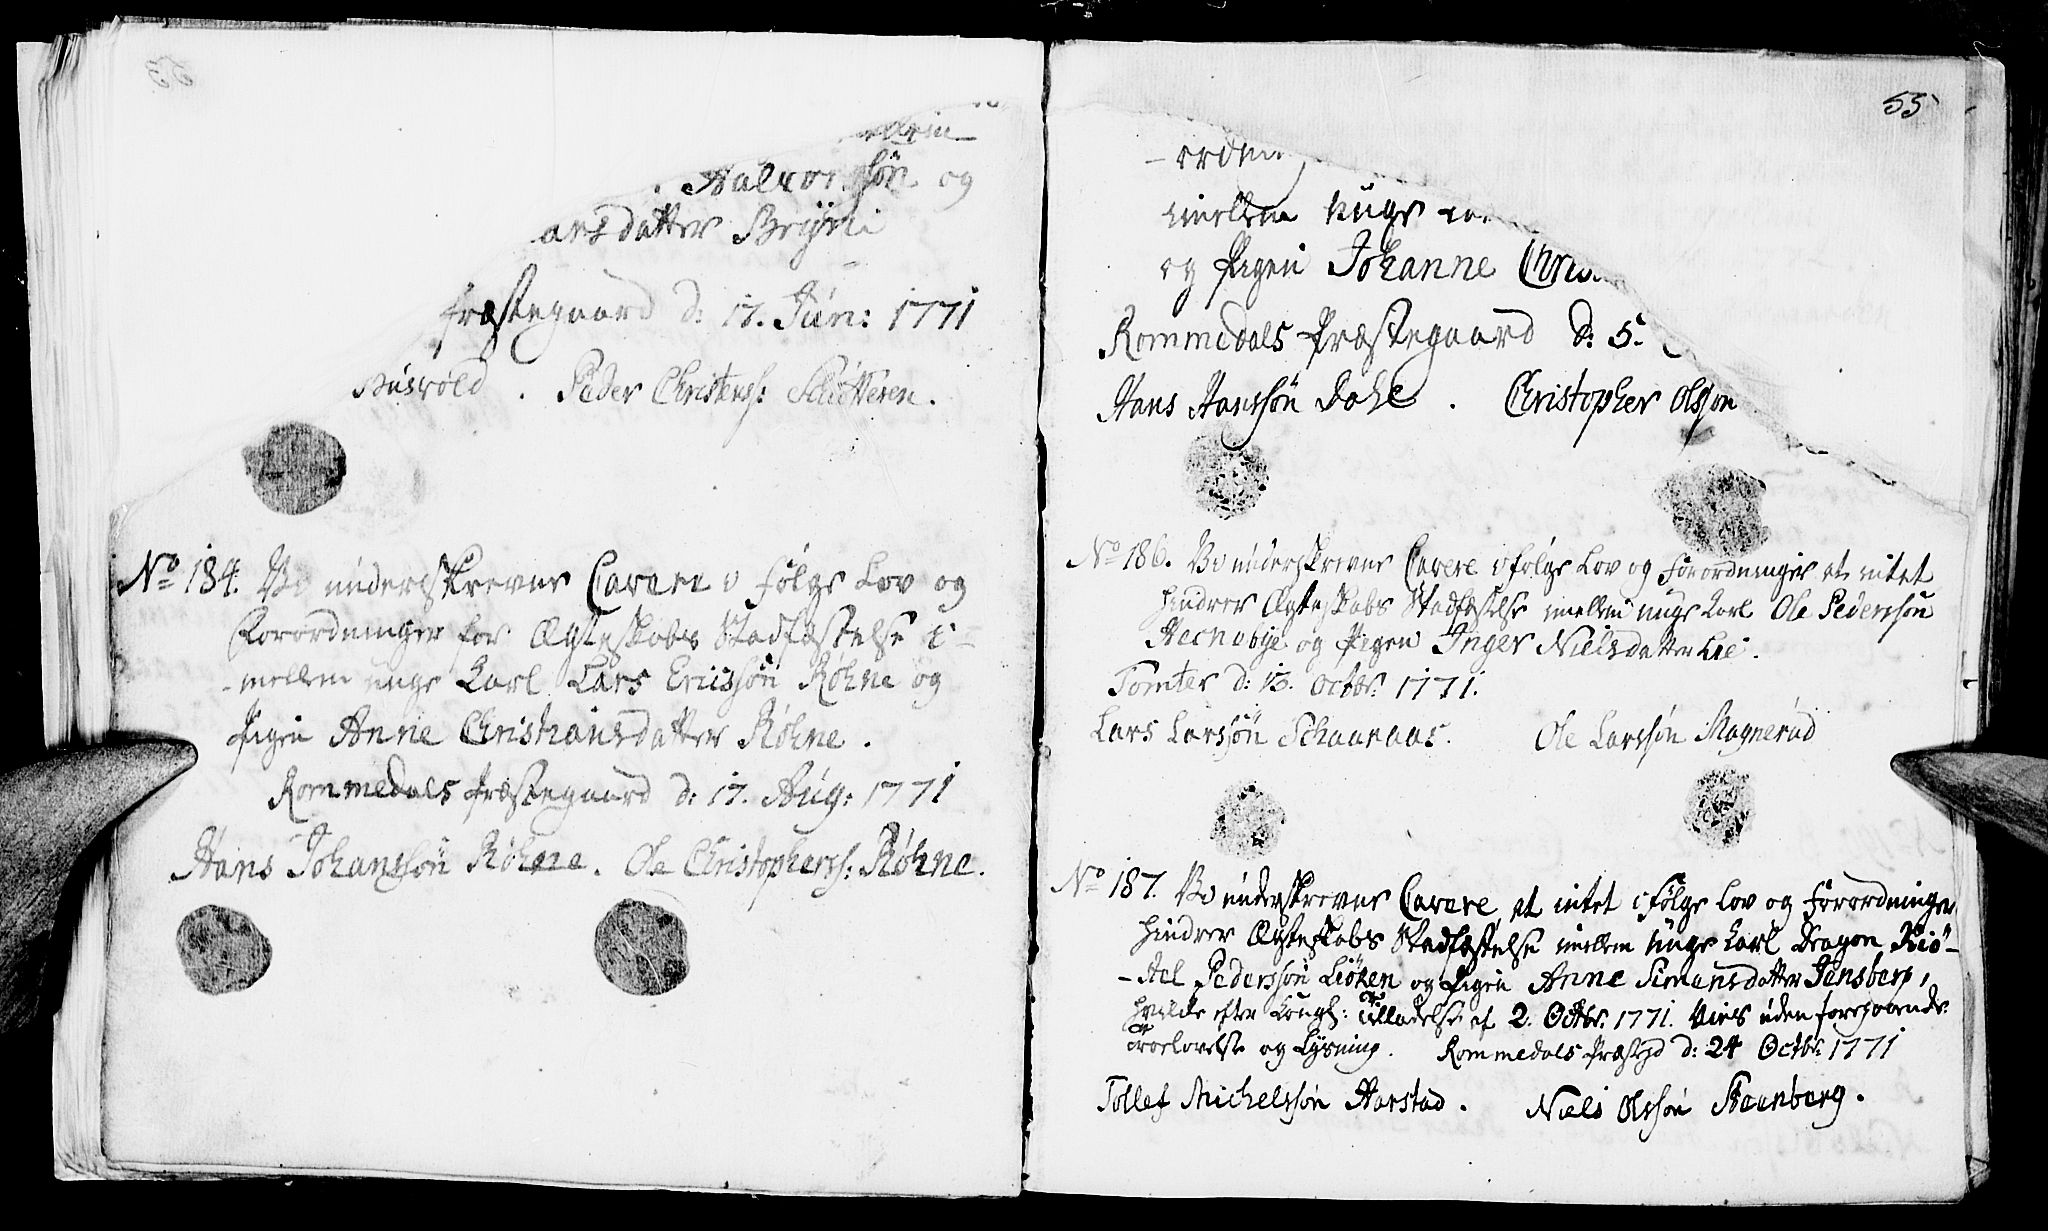 Halvorssøn og
arsdatter Bryni
Præstegaard d: 17. Jún: 1771
Peder Christens:
No 184. Vi underskrevne Cavere i følge Lov og
Forordninger for Ægteskabs Stadfæstelse i-
-mellem unge Karl Lars Ericssøn Røhne og
Pigen Anne Christiansdatter Røhne.
Rommedals Præstegaard d: 17. Aug: 1771
Hans Johanssøn Røhne. Ole Christophers: Røhne.
55
imellem unge
og Pigen Johanne
Rommedals Præstegaard d: 5.
Hans Hanssøn Dahl. Christopher Olsson
No 186. Vi underskrevne Cavere i følge Lov og Forordninger at intet
hindrer Ægteskabs Stadfæstelse imellem unge Karl Ole Pederssøn
og Pigen Inger Nielsdatter Lie.
Tomter d: 13. Octbr: 1771.
Lars Larssøn Schaaraas. Ole Larssøn Magnerud
No 187. Vi underskrevne Cavere at intet i følge Lov og Forordninger
hindrer Ægteskabs Stadfæstelse imellem unge Karl Dragon Kiø-
-stel Pederssøn Liøken og Pigen Anne Simensdatter Jønsberg,
hvilke efter Kongl: Tilladelse af 2. Octbr: 1771. vies uden foregaaende
Troelovelse og Lysning. Rommedals Præstgd d: 24 Octbr: 1771
Tollef Michelssøn Harstad. Niels Olssøn Steenberg.